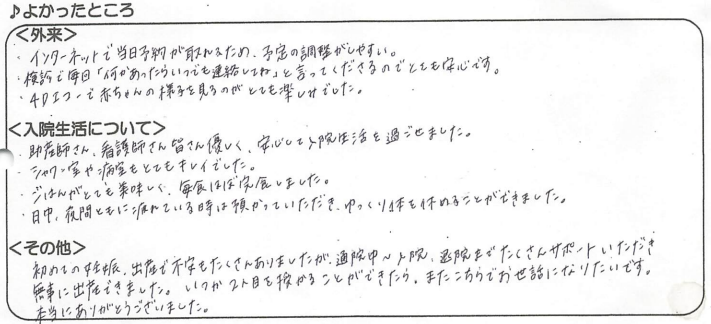 ♪よかったところ
<外来>
・インターネットで当日予約が取れるため、予定の調整がしやすい。
・検診で毎回「何かあったらいつでも連絡してね」と言ってくださるのでとても安心です。
・4Dエコーで赤ちゃんの様子を見るのがとても楽しみでした。
<入院生活について>
・助産師さん、看護師さん皆さん優しく、安心して入院生活を過ごせました。
・シャワー室や病室もとてもキレイでした。
・ごはんがとても美味しく、毎食ほぼ完食しました。
・日中、夜間ともに疲れている時は預かっていただき、ゆっくり体を休めることができました。
<その他>
初めての妊娠、出産で不安もたくさんありましたが、通院中〜入院、退院までたくさんサポートいただき
無事に出産できました。いつか2人目を授かることができたら、またこちらでお世話になりたいです。
本当にありがとうございました。